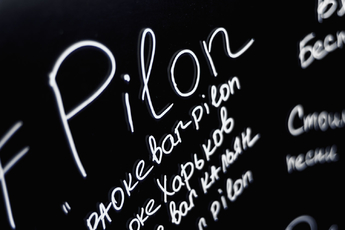 Pilon
раоке bar-pilon
оке Харьков
е bar кальян
n pilon
Бес
Стои
песни